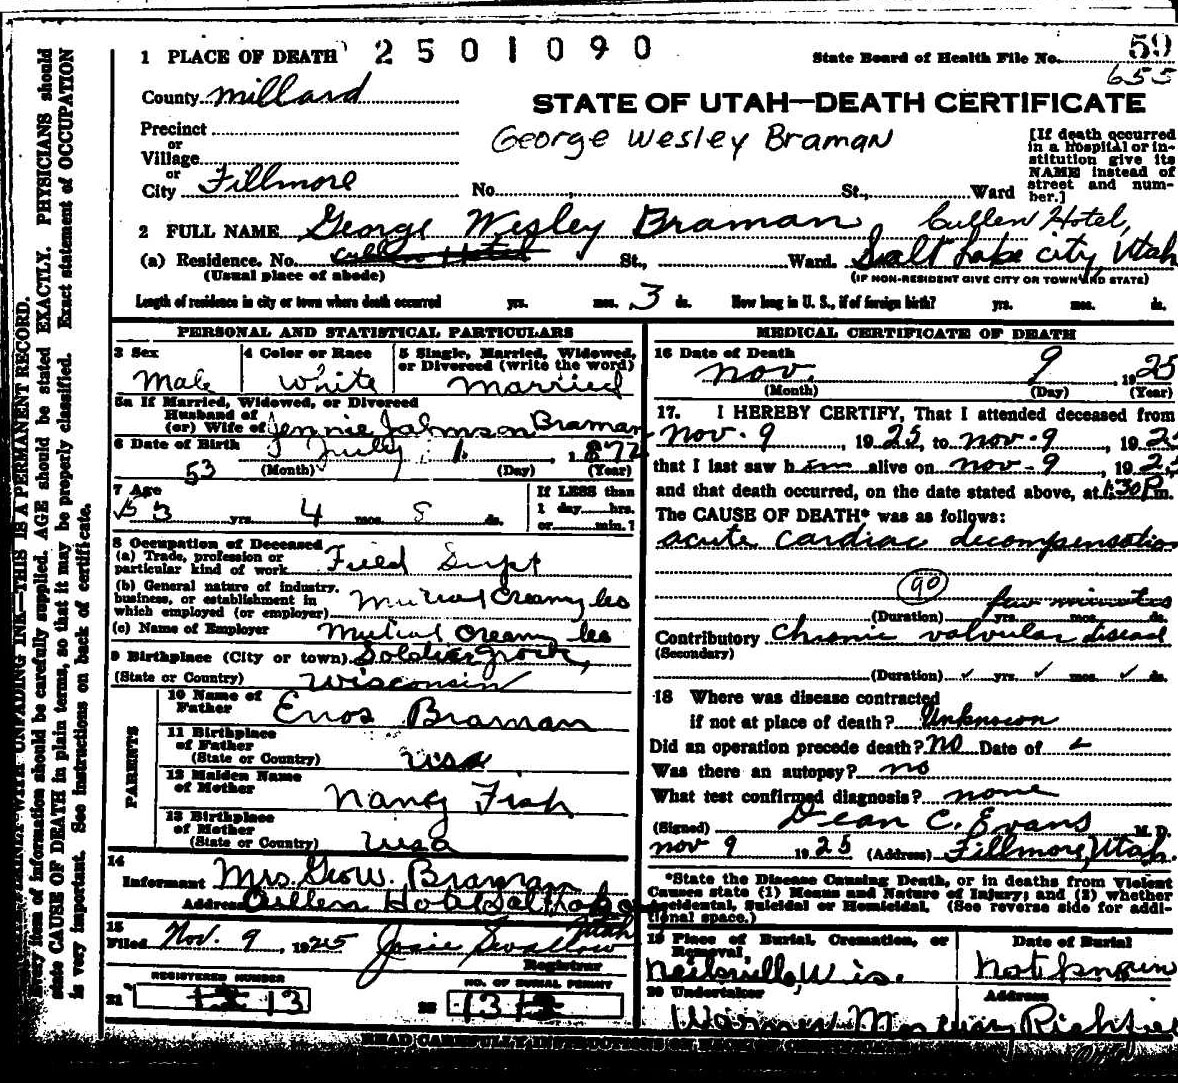 1 PLACE OF DEATH 2 5 0 1 0 9 0 State Board of Health File No. 59
655
County Millard
STATE OF UTAH—DEATH CERTIFICATE
Precinct
or
Village
or
City Fillmore No. St., Ward
George Wesley Braman
[If death occurred in a hospital or institution give its NAME instead of street and number.]
2 FULL NAME George Wesley Braman Cullen Hotel,
(a) Residence. No. St., Ward. Salt Lake City, Utah
(Usual place of abode) (IF NON-RESIDENT GIVE CITY OR TOWN AND STATE)
Length of residence in city or town where death occurred yrs. mos. 3 ds. How long in U. S., if of foreign birth? yrs. mos. ds.
PERSONAL AND STATISTICAL PARTICULARS
3 Sex Male
4 Color or Race White
5 Single, Married, Widowed, or Divorced (write the word) Married
5a If Married, Widowed, or Divorced
Husband of
(or) Wife of Jennie Johnson Braman
6 Date of Birth July 1 1872
53 (Month) (Day) (Year)
7 Age 53 yrs. 4 mos. 8 ds.
If LESS than
1 day hrs.
or min.?
8 Occupation of Deceased
(a) Trade, profession or particular kind of work Field Supt
(b) General nature of industry, business, or establishment in which employed (or employer) Mutual Creamy
(c) Name of Employer Mutual Creamy
9 Birthplace (City or town)
(State or Country) Wisconsin
PARENTS
10 Name of Father Enos Braman
11 Birthplace of Father
(State or Country) USA
12 Maiden Name of Mother Nancy Fish
13 Birthplace of Mother
(State or Country) USA
14
Informant Mrs. Geo W. Braman
Address Cullen Hotel Salt Lake
Utah
15
Filed Nov. 9, 1925 Josie Swallow
Registrar
REGISTERED NUMBER
21 13
NO. OF BURIAL PERMIT
22 13
MEDICAL CERTIFICATE OF DEATH
16 Date of Death
Nov. 9, 1925
(Month) (Day) (Year)
17. I HEREBY CERTIFY, That I attended deceased from
Nov. 9, 1925 to Nov. 9 1925
that I last saw him alive on Nov. 9, 1925
and that death occurred, on the date stated above, at 1:30 P.m.
The CAUSE OF DEATH* was as follows:
acute cardiac decompensation
90 few minutes
(Duration) yrs. mos. ds.
Contributory Chronic valvular disease
(Secondary)
(Duration) yrs. mos. ds.
18 Where was disease contracted
if not at place of death? Unknown
Did an operation precede death? no Date of
Was there an autopsy? no
What test confirmed diagnosis? none
(Signed) Dean C. Evans M. D.
Nov 9 1925 (Address) Fillmore, Utah.
*State the Disease Causing Death, or in deaths from Violent
Causes state (1) Means and Nature of Injury; and (2) whether
Accidental, Suicidal or Homicidal. (See reverse side for addi-
tional space.)
19 Place of Burial, Cremation, or Removal, Neilsville, Wis.
Date of Burial Not known
20 Undertaker
Address Richfie
READ CAREFULLY INSTRUCTIONS ON BACK OF CERTIFICATE
WRITE PLAINLY WITH UNFADING INK—THIS IS A PERMANENT RECORD.
Every item of information should be carefully supplied. AGE should be stated EXACTLY. PHYSICIANS should
state CAUSE OF DEATH in plain terms, so that it may be properly classified. Exact statement of OCCUPATION
is very important. See instructions on back of certificate.